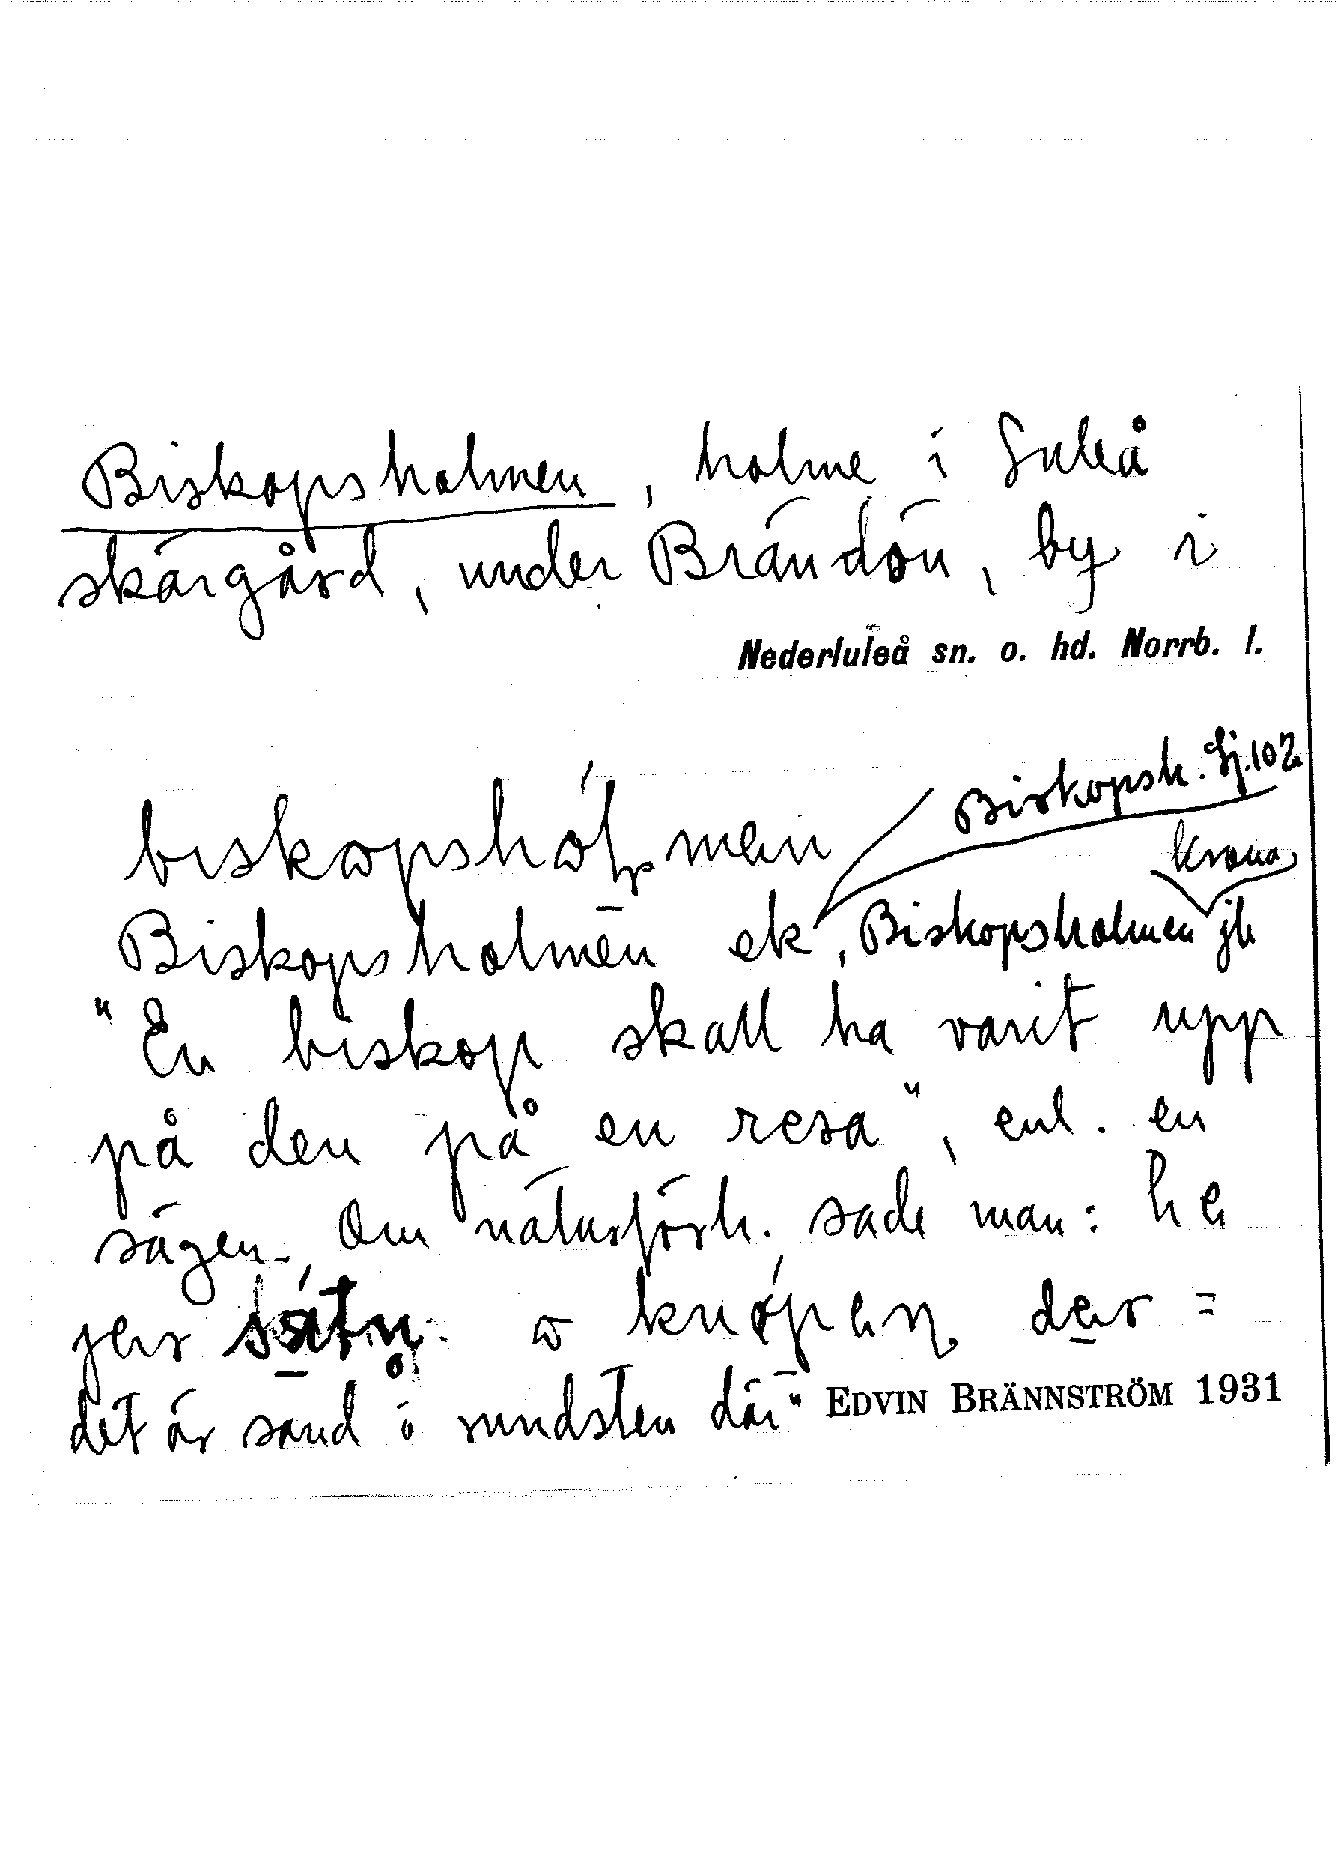 Biskopsholmen, holme i Luleå
skärgård, under Brändön, by i
Nederluleå sn. o. hd. Norrb. l.
Biskopsh. Sj.102
biskopshol̥man
krona
Biskopsholmen ek, Biskopsholmen jb
"En biskop skall ha varit upp
på den på en resa", enl. en
sägen. Om naturförh. sade man: he
jer o knöpen der =
det är sand o rundsten där" EDVIN BRÄNNSTRÖM 1931